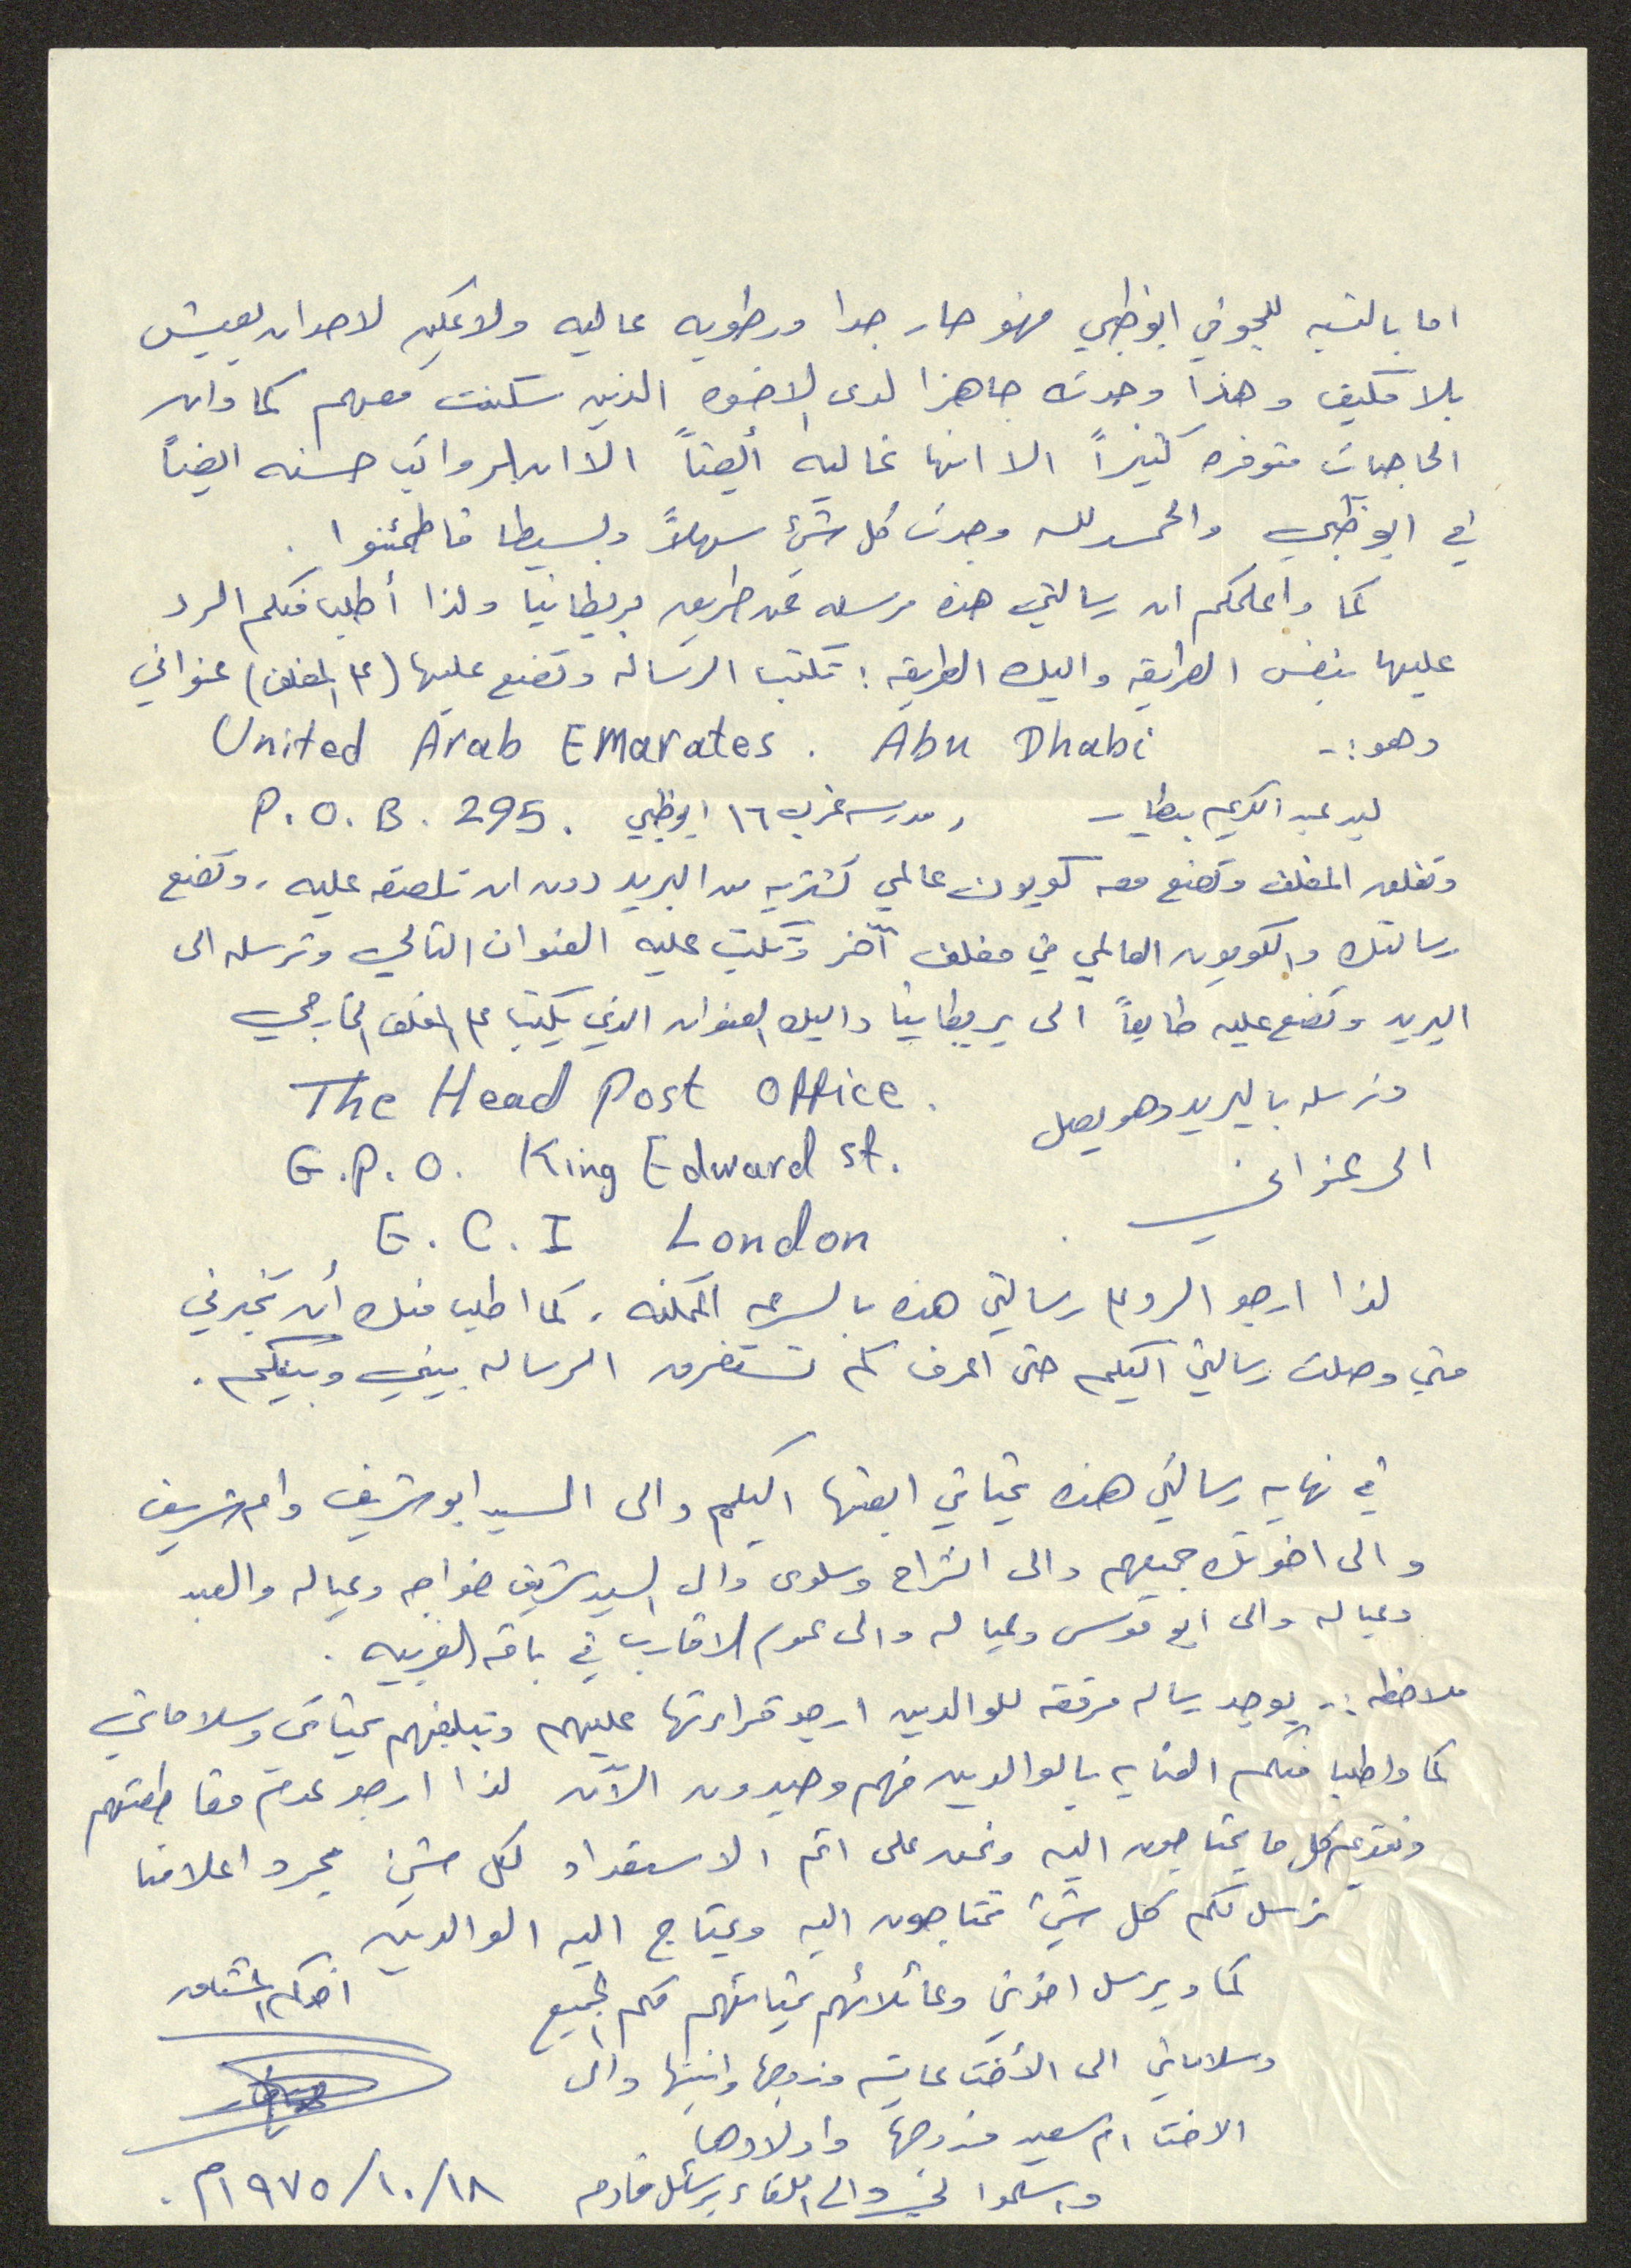 اما بالنسبه للجو في ابوظبي فهو حار جدا ورطوبه عاليه ولا يمكن لاحد ان يعيش
بلا مكيف وهذا وجدته جاهزا لدى الاخوه الذين سكنت معهم كما وان
الحاجيات متوفره كثيراً الا انها غاليه أيضاً الا ان الرواتب حسنه ايضاً
في ابوظبي والحمد لله وجدت كل شيء سهلاً وبسيطا فاطمئنوا .
كما واعلمكم ان رسالتي هذه مرسله عن طريق بريطانيا ولذا أطلب منكم الرد
عليها بنفس الطريقه واليك الطريقه : تكتب الرساله وتضع عليها (على المغلف) عنواني
وهو :- United Arab EMarates . Abu Dhabi
عبد الكريم ، مدرسه ١٦ ابوظبي . P.O.B. 295
وتغلق المغلف وتضع معه كوبون عالمي تشتريه من البريد دون ان تلصقه عليه ، وتضع
رسالتك والكوبون العالمي في مغلف آخر وتكتب عليه العنوان التالي وترسله الى
البريد وتضع عليه طابعاً الى بريطانيا واليك العنوان الذي يكتب على المغلف الخارجي
The Head Post Office .
وترسله بالبريد وهو يصل
G.P.O. King Edward St.
الى عنواني .
E.C.I London
لذا ارجو الرد على رسالتي هذه بالسرعه الممكنه ، كما اطلب منك أن تخبرني
متى وصلت رسالتي اليكم حتى اعرف كم تستغرق الرساله بيني وبينكم .
في نهاية رسالتي هذه تحياتي ابعثها اليكم والى السيد ابو شريف وام شريف
والى اخوتك جميعهم والى انشراح وسلوى والى السيد شريف خواجه وعياله والعبد
وعياله والى ابو وعياله والى عموم الاقارب في باقه الغربيه .
ملاحظه :- يوجد رساله مرفقه للوالدين ارجو قراءتها عليهم وتبليغهم تحياتي وسلاماتي
كما واطلب منكم العنايه بالوالدين فهم وحيدون الآن لذا ارجو عدم مقاطعتهم
وتقديم كل ما يحتاجون اليه ونحن على اتم الاستعداد لكل شيء مجرد اعلامنا
نرسل لكم كل شيء تحتاجون اليه ويحتاج اليه الوالدين
كما ويرسل اخوتي وعائلاتهم تحياتهم لكم الجميع
اخوكم المشتاق
وسلاماتي الى الأخت وزوجها وابنتها والى
الاخت ام سعيد وزوجها واولادها
واسلموا والى اللقاء برسائل قادمه
١٩٧٥/١٠/١٨م .